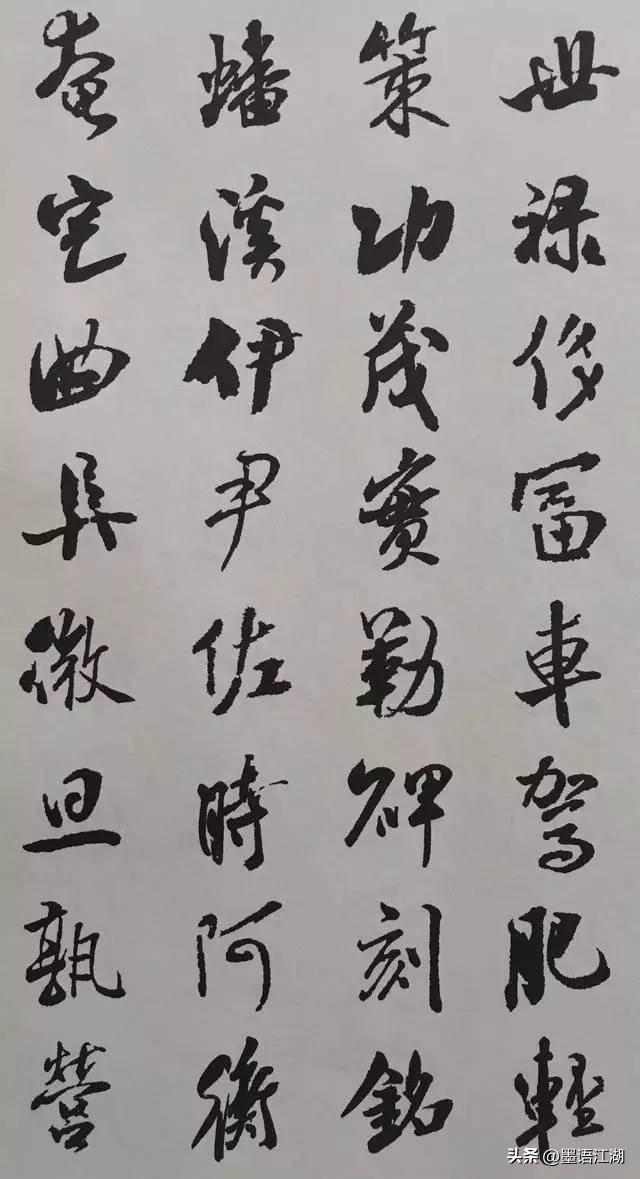 世禄侈富車駕肥輕
策功茂實勒碑刻銘
蟠溪伊尹佐時阿衡
奄宅曲阜微旦孰營
头条 @墨语江湖